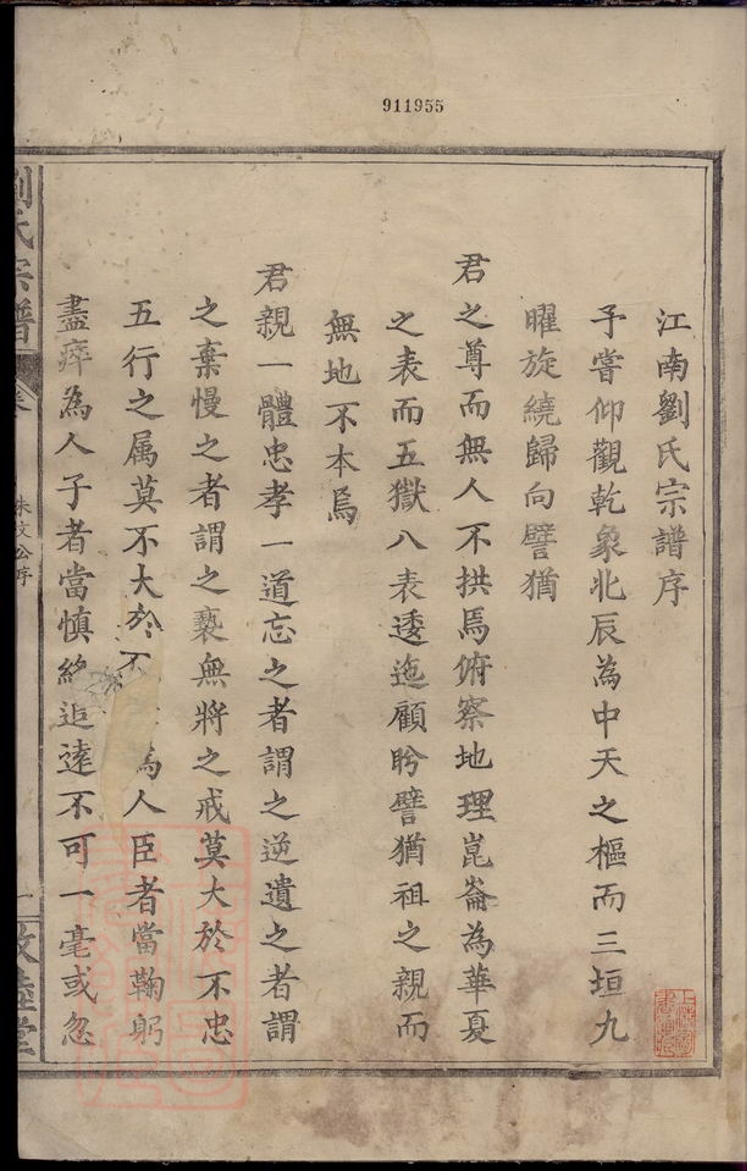 911955
江南劉氏宗譜序
予嘗仰觀乾象北辰為中天之樞而三垣九
曜旋繞歸向譬猶
君之尊而無人不拱焉俯察地理崑崙為華夏
之表而五獄八表逶迤顧盻譬猶祖之親而
無地不本焉
君親一體忠孝一道忘之者謂之逆遺之者謂
之棄慢之者謂之褻無將之戒莫大於不忠
五行之属莫不大於不為人臣者當鞠躬
盡瘁為人子者當慎終追逺不可一毫或忽
劉氏宗譜
卷
朱文公序
一
敦睦堂